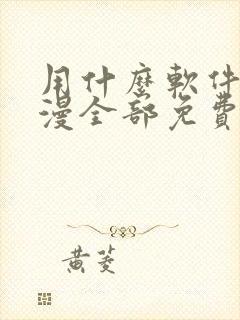 用什麼軟件
漫全部免費
黃菱